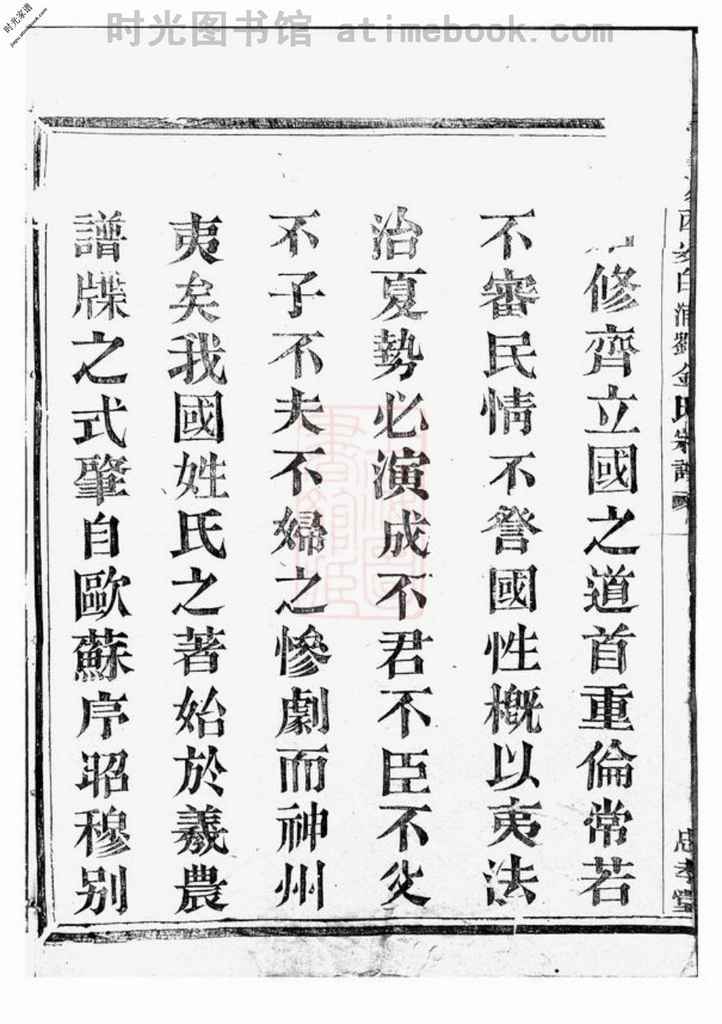 时光图书馆 atimebook.com
时光家谱
修齊立國之道首重倫常若
不審民情不詧國性槪以夷法
治夏勢必演成不君不臣不父
不子不夫不婦之慘劇而神州
夷矣我國姓氏之著始於羲農
譜牒之式肇自歐蘇序昭穆別
劉金氏宗譜
忠孝堂